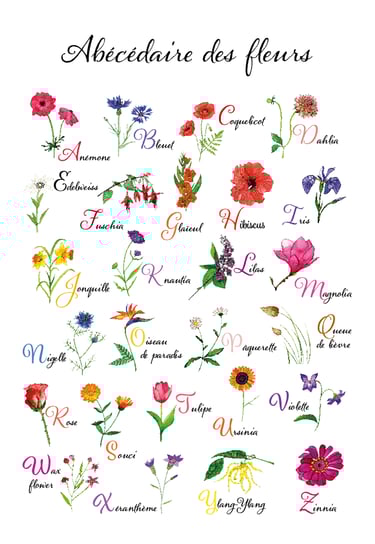 Abécédaire des fleurs
Anémone
Bleuet
Coquelicot
Dahlia
Edelweiss
Fuschia
Glaïeul
Hibiscus
Iris
Jonquille
Knautia
Lilas
Magnolia
Nigelle
Oiseau
de paradis
Paquerette
Queue
de lièvre
Rose
Souci
Tulipe
Ursinia
Violette
Wax
flower
Xéranthème
Ylang-Ylang
Zinnia